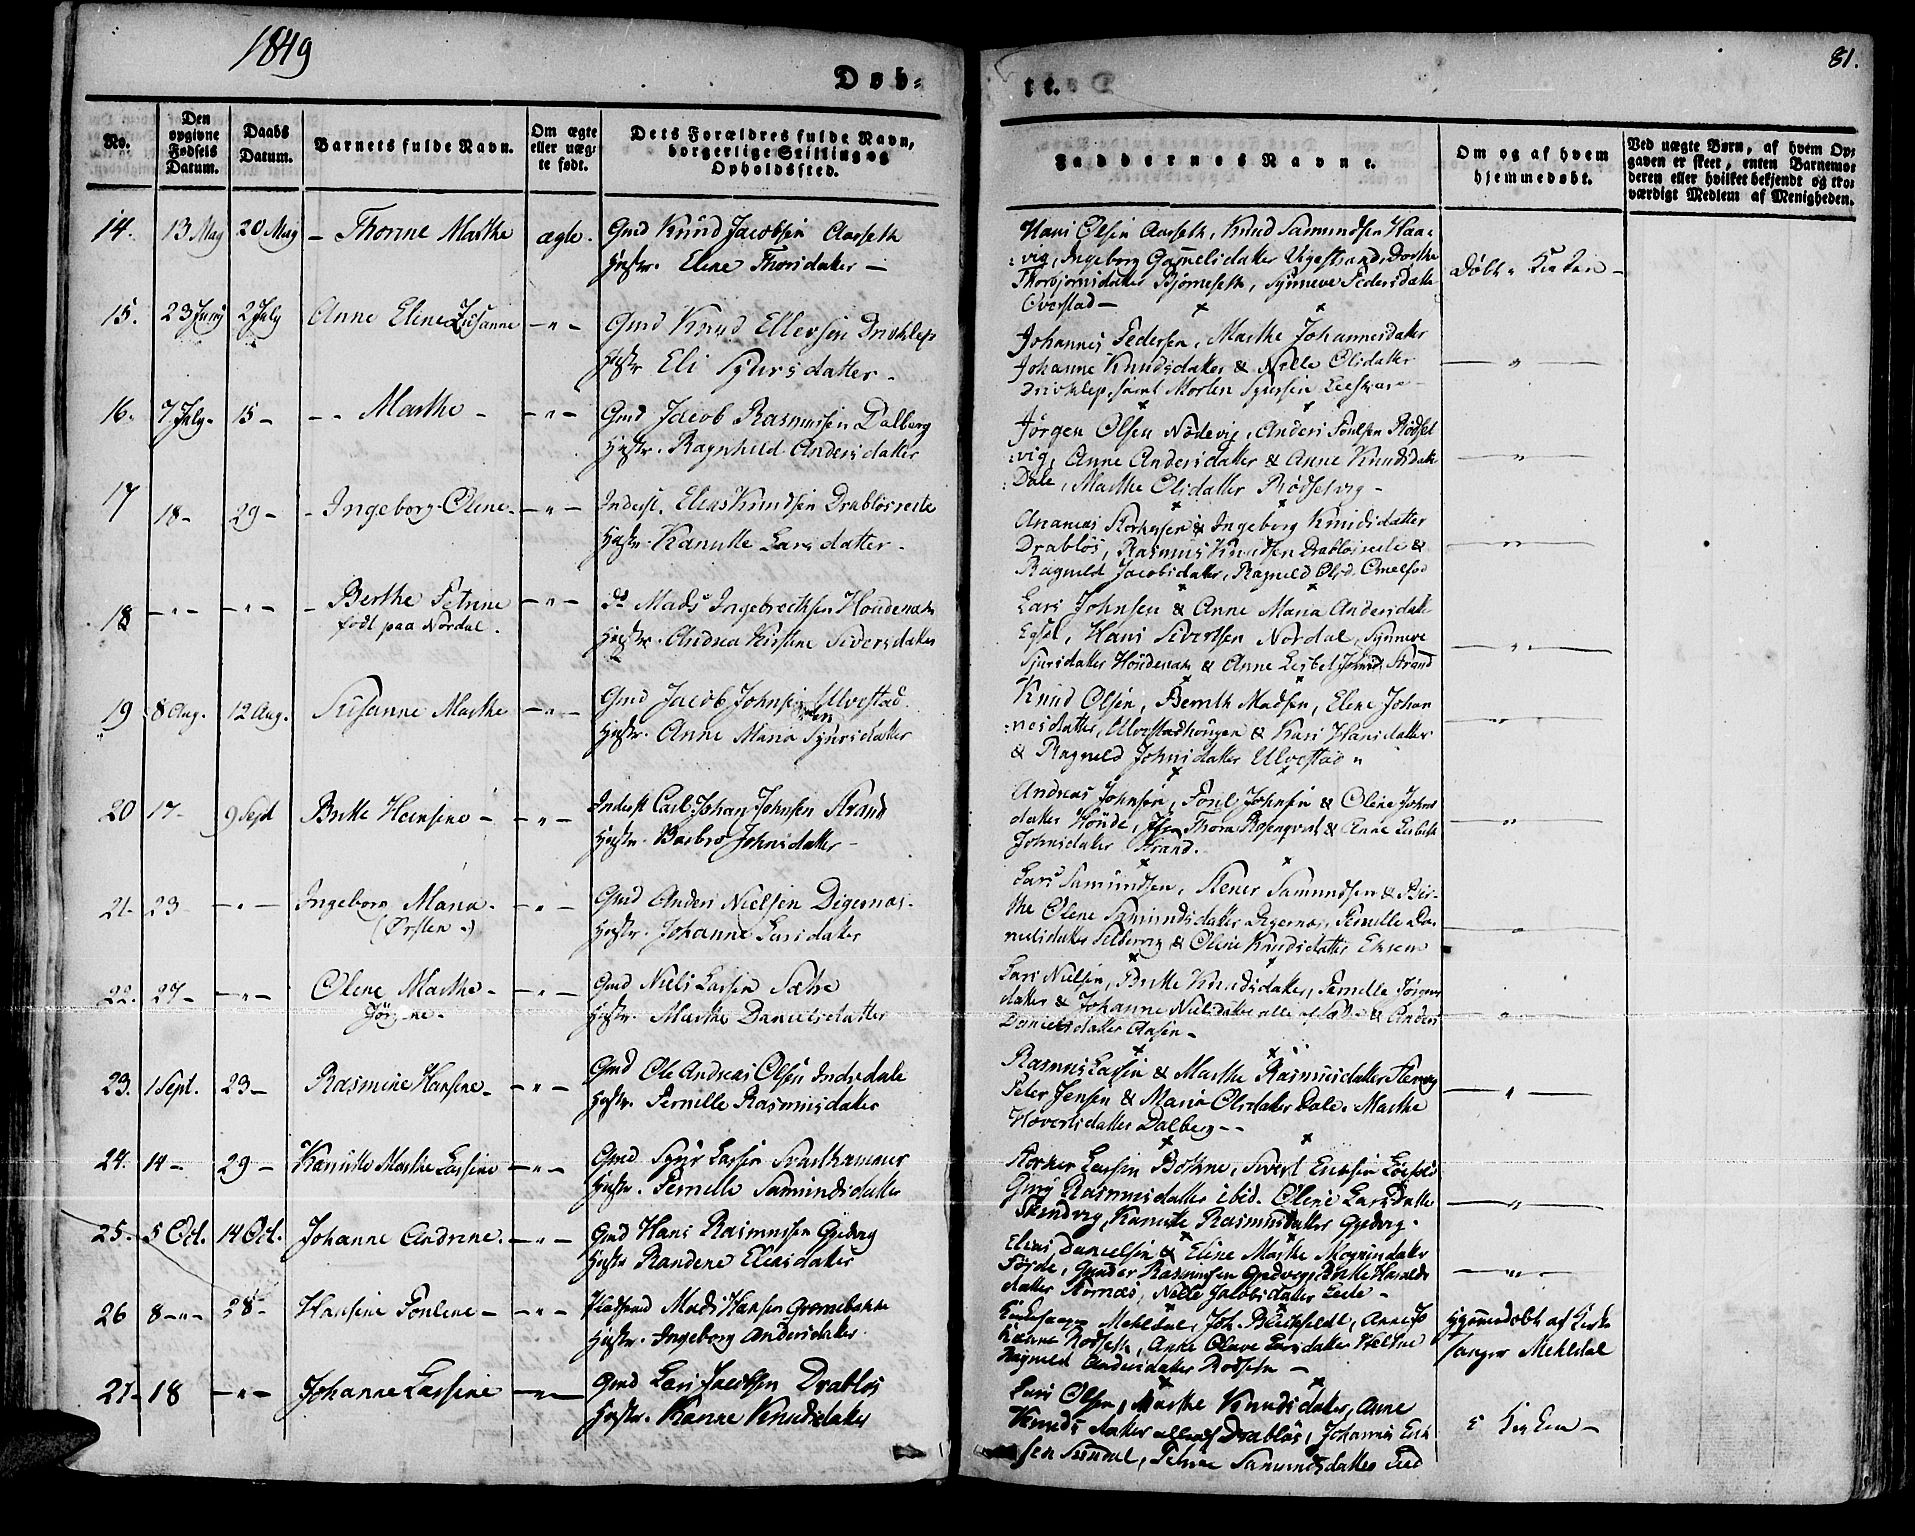 1849
81.
Døb-
te.
No.
Den opgivne Fødsels Datum.
Daabs Datum.
Barnets fulde Navn.
Om ægte eller uæg-te født.
Dets Forældres fulde Navn, borgerlige Stilling og Opholdssted.
Faddernes Navne.
Om og af hvem hjemmedøbt.
Ved uægte Børn, af hvem Op-gaven er skeet, enten Barnemo-deren eller hvilket bekjendt og tro-værdigt Medlem af Menigheden.
14. 13 May 20 May - Thorine Marthe ægte. Gmd Knud Jacobsen Aarseth
Hustr. Eline Thorsdatter -
Hans Olsen Aarseth, Knud Samundsen Haa-
vig, Ingeborg Gamelsdatter Vigestrand, Dorthe
Thorbjørnsdatter Bjørneseth, Synneve Pedersdatter
Overstad -
Døbt i Kirken -
15. 23 Juny 2 July Anne Eline Susanne -"- Gmd Knud Ellevsen Driveklep
Hustr Eli Sjursdatter -
Johannes Pedersen, Marthe Johannesdatter
Johanne Knudsdatter & Nille Olsdatter
Driveklep, samt Morten Sjursen
16. 7 July - 15 - -- Marthe - -"- Gmd Jacob Rasmussen Dalberg
Hustr. Ragnhild Andersdatter
Jørgen Olsen Nødevig, Anders Poulsen Rødset-
vig, Anne Andersdatter & Anne Knudsdatter
Dale, Marthe Olsdatter Rødsetvig -
17 18 - 29 - - Ingeborg Oline - -"- Inderst. Elias Knudsen Drabløsreite
Hustr. Kanutte Larsdatter -
Ananias & Ingeborg Knudsdatter
Drabløs, Rasmus Knudsen Drabløsreite &
Ragneld Jacobsdatter, Ragneld Olsd.
18 -"- -"- - Berthe Petrine -"- do Mads Ingebretsen Houdenak
født paa Nordal. Hustr. Andrea Kirstine Siversdatter
Lars Johnsen & Anne Maria Andersdatter
Egset, Hans Sivertsen Nordal, Synneve
Sjursdatter Houdenak & Anne Lisbet Johnsd. Strand
19 8 Aug. 12 Aug. Susanne Marthe -"- Gmd Jacob Johnsen Ulvestad
Hustr. Anne Maria Sjursdatter
Knud Olsen, Bernth Madsen, Elene Johan
nesdatter, Ulvestadhougen & Kari Hansdatter
& Ragneld Johnsdatter Ulvestad "
20 17 - 9 Sept Birthe Hansine - -"- Inderst Carl Johan Johnsen Strand
Hustr. Barbro Johnsdatter -
Andreas Johnsen, Poul Johnsen & Oline Johns
datter Houde, Thora Rosenqvist & Anne Lisbeth
Johnsdatter Strand.
21. 23 -"- Ingeborg Maria - -"- Gmd Anders Nielsen Digernæs -
(Ørsten) Hustr. Johanne Larsdatter
Lars Samundsen, Stener Samundsen & Ber-
the Oline Samundsdatter Digernæs, Pernille Da-
nielsdatter & Oline Knudsdatter Eksem
22. 27 - -"- Oline Marthe - -"- Gmd Niels Larsen Sætre
Jørgine - Hustr. Marthe Danielsdatter
Lars Nielsen, Birthe Knudsdatter, Pernille Jørgens
datter & Johanne Nielsdatter alle af Sætre & Anders
Danielsdatter Aasen -
23. 1 Sept. 23 - Rasmine Hansine - -"- Gmd Ole Andreas Olsen Indredale
Hustr. Pernille Rasmusdatter
Rasmus Larsen & Marthe Rasmusdatter
Peter Jensen & Maria Olsdatter Dale, Marthe
Hovertsdatter Dalberg --
24. 14 - 29 - Kanutte Marthe Larsine -"- Gmd Sjur Larsen Svarthammer
Hustr. Pernille Samundsdatter
Larsen Bøhne, Sivert
Rasmusdatter ibid. Oline Larsdatter
Kanutte Rasmusdatter Gjedvig -
25. 5 Oct. 14 Oct. Johanne Andrine. -"- Gmd Hans Rasmussen Gjedvig
Hustr Randene Eliasdatter
Elias Danielsen & Eline Marthe Mogensdatter
Førde, Rasmussen Gjedvig, Birthe Haralds
datter, Nille Jacobsdatter -
26 8 -"- 28 - Hansine Pouline - -"- Pladsmd Mads Hansen Grønnebakke
Hustr. Ingeborg Andersdatter
Kirkesanger Mehldal, Joh. Anne
Rødseth, Anne Olave Larsdatter
Ragneld Andersdatter Rødseth -
Hjemmedøbt af Kirke
sanger Mehldal
27 - 18 -"- Johanne Larsine -"- Gmd Lars Jacobsen Drabløs
Hustr. Hanne Knudsdatter
Lars Olsen, Marthe Knudsdatter, Anne
Knudsdatter alle af Drabløs, Johannes
sen Sundal, Samundsdatter
i Kirken -